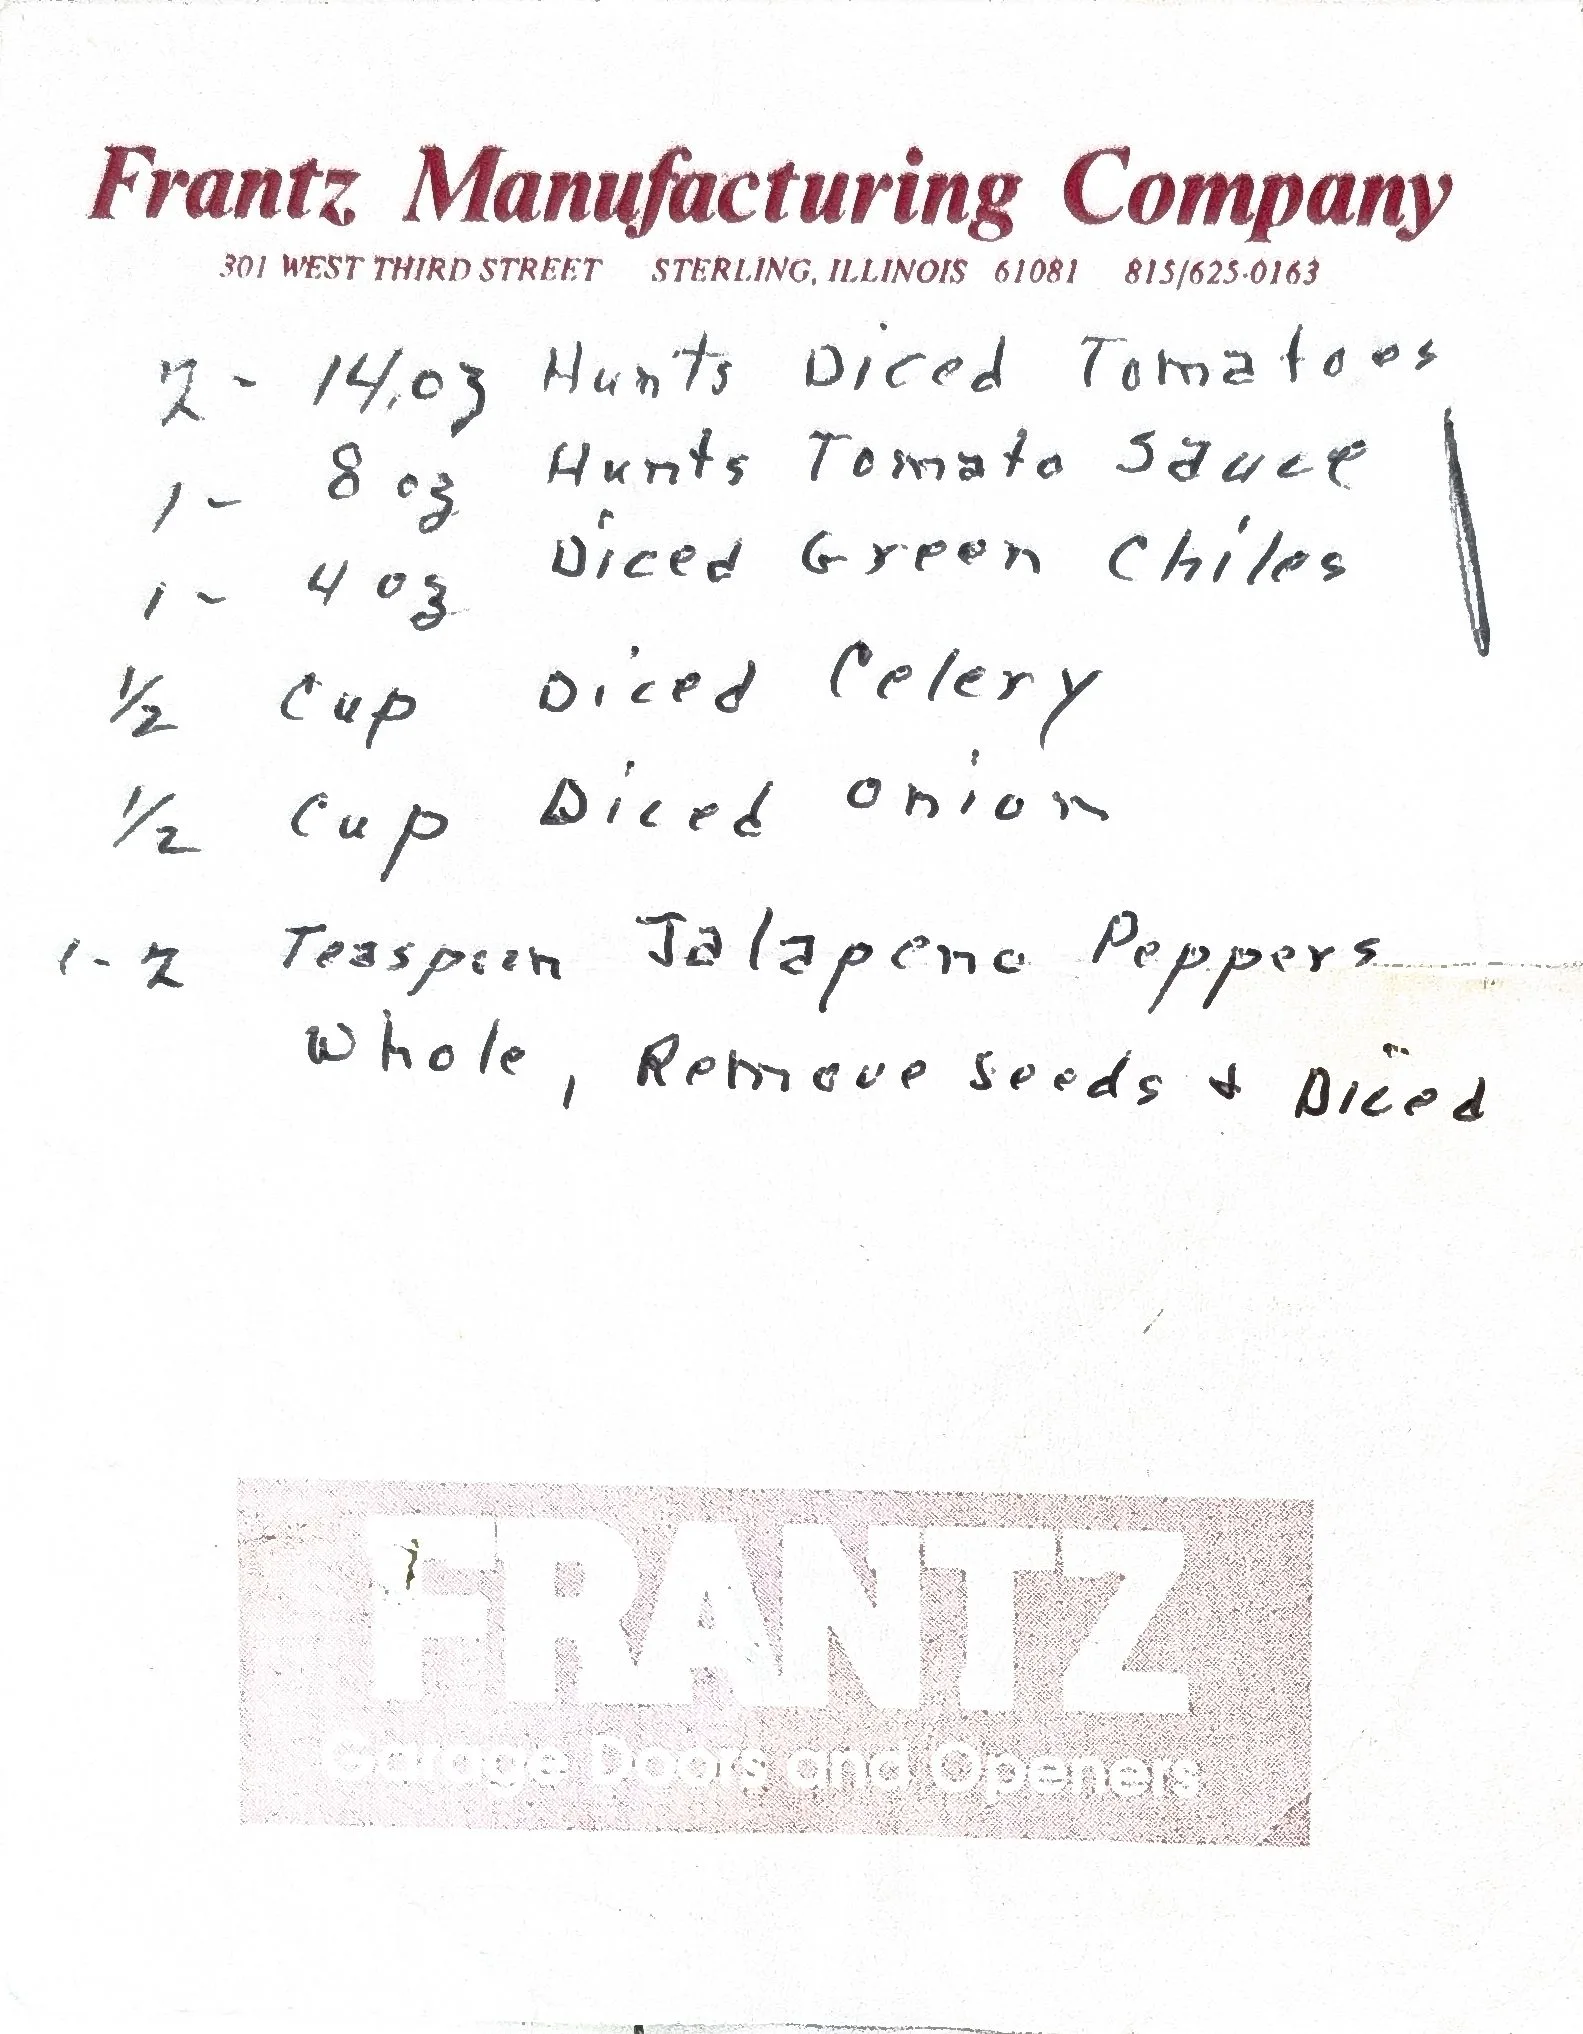 Frantz Manufacturing Company
301 WEST THIRD STREET STERLING, ILLINOIS 61081 815/625-0163
2 - 14.oz Hunts Diced Tomatoes
1 - 8 oz Hunts Tomato Sauce
1 - 4 oz Diced Green Chiles
1/2 Cup Diced Celery
1/2 Cup Diced Onion
1-2 Teaspoon Jalapeno Peppers
Whole, Remove seeds & Diced
FRANTZ
Garage Doors and Openers